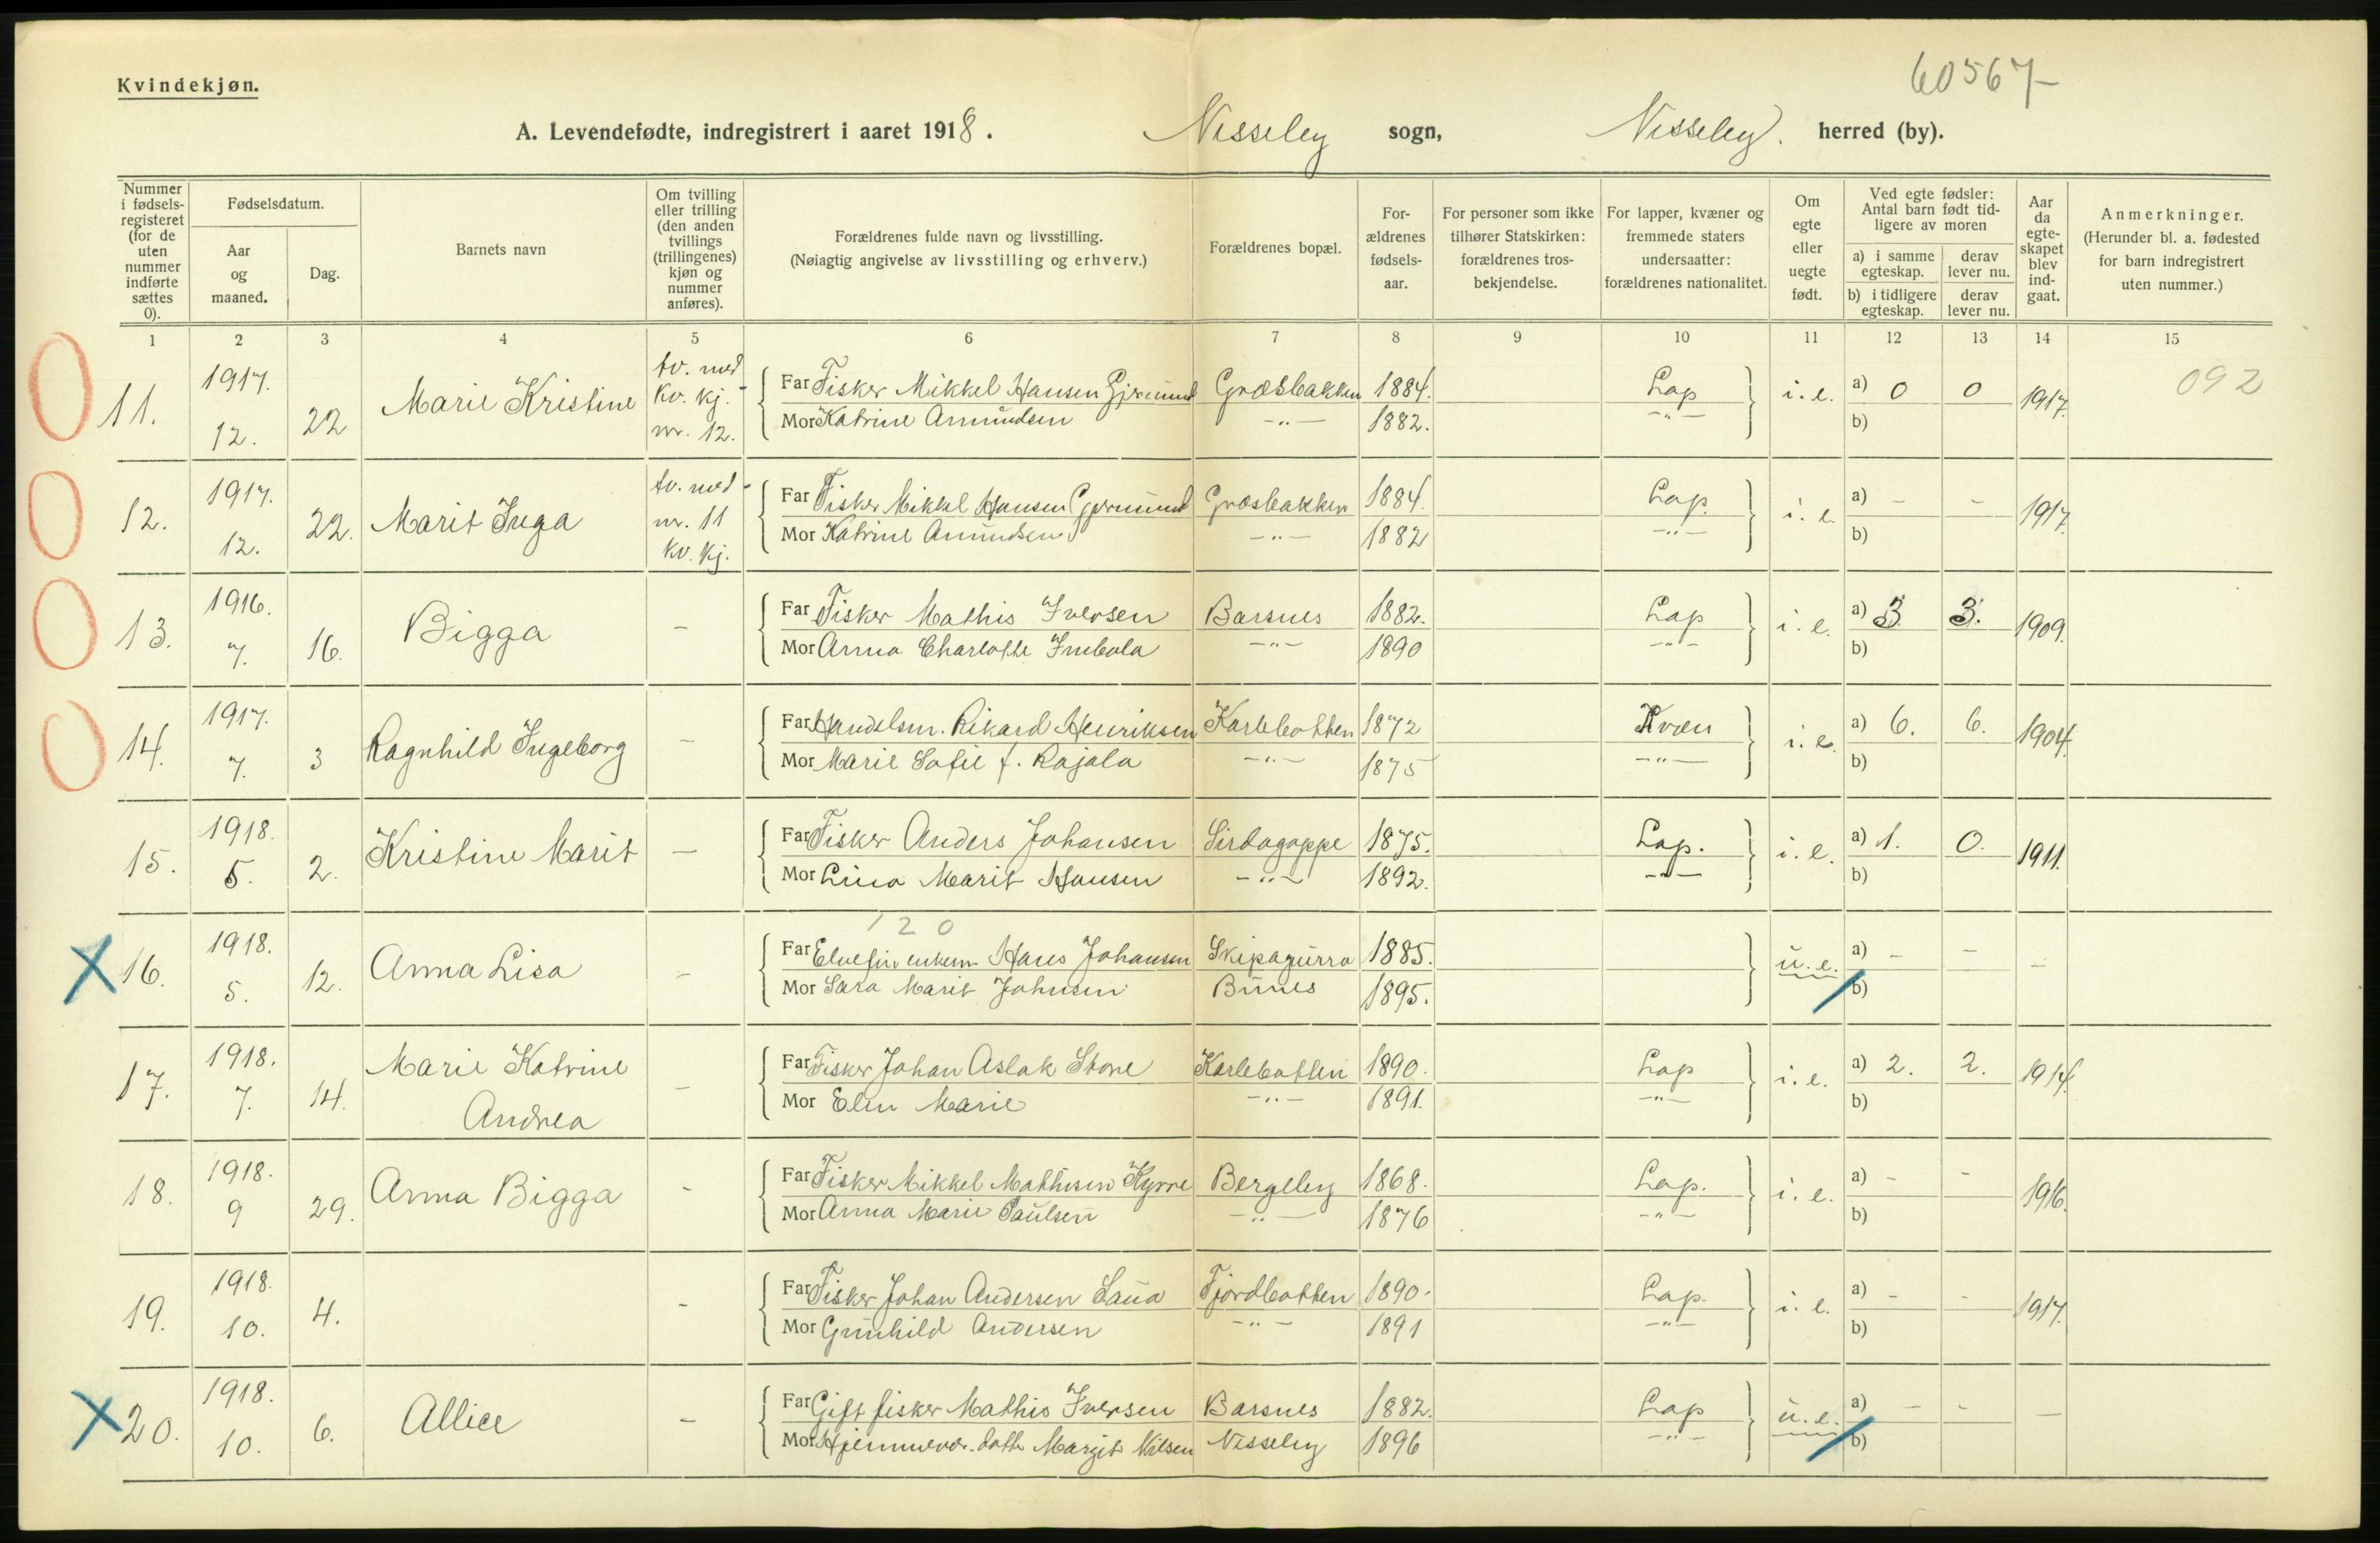 60567
Kvindekjøn.
A. Levendefødte, indregistrert i aaret 1918. Nesseby sogn, Nesseby. herred (by).
Nummer i fødsels-registeret (for de uten nummer indførte sættes 0).
Fødselsdatum.
Aar og maaned.
Dag.
Barnets navn
Om tvilling eller trilling (den anden tvillings (trillingenes) kjøn og nummer anføres).
Forældrenes fulde navn og livsstilling.
(Nøiagtig angivelse av livsstilling og erhverv.)
Forældrenes bopæl.
For-ældrenes fødsels-aar.
For personer som ikke tilhører Statskirken: forældrenes tros-bekjendelse.
For lapper, kvæner og fremmede staters undersaatter: forældrenes nationalitet.
Om egte eller uegte født.
Ved egte fødsler: Antal barn født tid-ligere av moren
a) i samme egteskap.
derav lever nu.
b) i tidligere egteskap.
derav lever nu.
Aar da egte-skapet blev ind-gaat.
Anmerkninger.
(Herunder bl. a. fødested for barn indregistrert uten nummer.)
1 2 3 4 5 6 7 8 9 10 11 12 13 14 15
11. 1917. 12. 22 Marie Kristine tv. med kv. kj. nr. 12. Far Fisker Mikkel Hansen Gjermund Græsbakken 1884. Lap i. e. a) 0 0 1917. 092
Mor Katrine Amundsen -"- 1882. -"- b)
12. 1917. 12. 22. Marit Inga tv. med nr. 11 kv. kj. Far Fisker Mikkel Hansen Gjermund Græsbakken 1884. Lap. i. e. a) - - 1917.
Mor Katrine Amundsen -"- 1882 -"- b)
13. 1916. 7. 16. Bigga - Far Fisker Mathis Iversen Barsnes 1882. Lap i. e. a) 3 3. 1909.
Mor Anna Charlotte Imbola -"- 1890 -"- b)
14. 1917. 7. 3 Ragnhild Ingeborg - Far Handelsm. Rikard Henriksen Karlebotten 1872 Kvæn i. e. a) 6. 6. 1904.
Mor Marie Sofie f. Rajala -"- 1875 -"- b)
15. 1918. 5. 2. Kristine Marit - Far Fisker Anders Johansen Sirdagoppe 1875. Lap. i. e. a) 1. 0. 1911.
Mor Lina Marit Hansen -"- 1892. -"- b)
120
16. 1918. 5. 12. Anna Lisa - Far Elvefin enkem. Hans Johansen Skipagurra 1885. u. e. a) - - -
Mor Sara Marit Johnsen Bunes 1895. b)
17. 1918. 7. 14. Marie Katrine Andrea - Far Fisker Johan Aslak Store Karlebotten 1890. Lap i. e. a) 2. 2. 1914.
Mor Elen Marie -"- 1891. -"- b)
18. 1918. 9 29. Anna Bigga - Far Fisker Mikkel Mathisen Kyrre Bergeby 1868. Lap. i. e. a) - - 1916.
Mor Anna Marie Paulsen -"- 1876 -"- b)
19. 1918. 10. 4. - Far Fisker Johan Andersen Saua Fjordbotten 1890. Lap. i. e. a) - - 1917.
Mor Gunhild Andersen -"- 1891 -"- b)
20. 1918. 10. 6. Allice - Far Gift fisker Mathis Iversen Barsnes 1882. Lap u. e. a) - - -
Mor Hjemmevær. datter Margit Nilsen Nesseby 1896 -"- b)